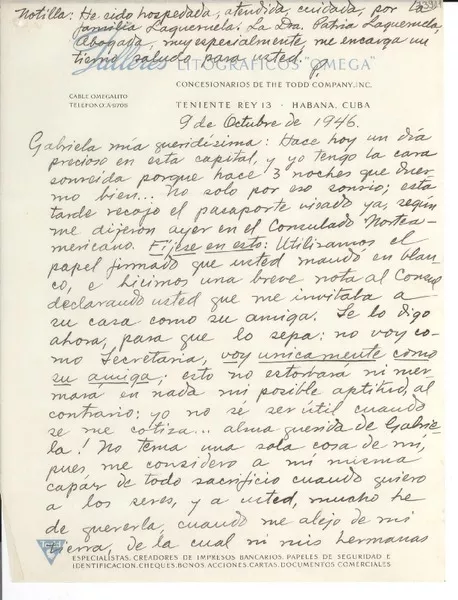 Notilla: He sido hospedada, atendida, cuidada, por la
familia Laqueruela: La Dra. Patria Laqueruela,
Abogada, muy especialmente, me encarga un
tierno saludo para usted.
Talleres LITOGRAFICOS "OMEGA"
CONCESIONARIOS DE THE TODD COMPANY, INC.
CABLE OMEGALITO
TELEFONO: A-9708
TENIENTE REY 13 · HABANA, CUBA
9 de Octubre de 1946.
Gabriela mía queridísima: Hace hoy un día
precioso en esta capital, y yo tengo la cara
sonreída porque hace 3 noches que duer-
mo bien... No solo por eso sonrío; esta
tarde recojo el pasaporte visado ya, según
me dijeron ayer en el Consulado Nortea-
mericano. Fíjese en esto: Utilizamos el
papel firmado que usted mandó en blan-
co, e hicimos una breve nota al Consul
declarando usted que me invitaba a
su casa como su amiga. Se lo digo
ahora, para que lo sepa: no voy co-
mo Secretaria, voy unicamente como
su amiga; esto no estorbará ni mer-
mará en nada mi posible aptitud, al
contrario: yo no sé ser útil cuando
se me cotiza... alma querida de Gabrie-
la! No tema una sola cosa de mí,
pues me considero a mí misma
capaz de todo sacrificio cuando quiero
a los seres, y a usted, mucho he
de quererla, cuando me alejo de mi
tierra, de la cual ni mis hermanas
ESPECIALISTAS, CREADORES DE IMPRESOS BANCARIOS, PAPELES DE SEGURIDAD E
IDENTIFICACION, CHEQUES, BONOS, ACCIONES, CARTAS, DOCUMENTOS COMERCIALES